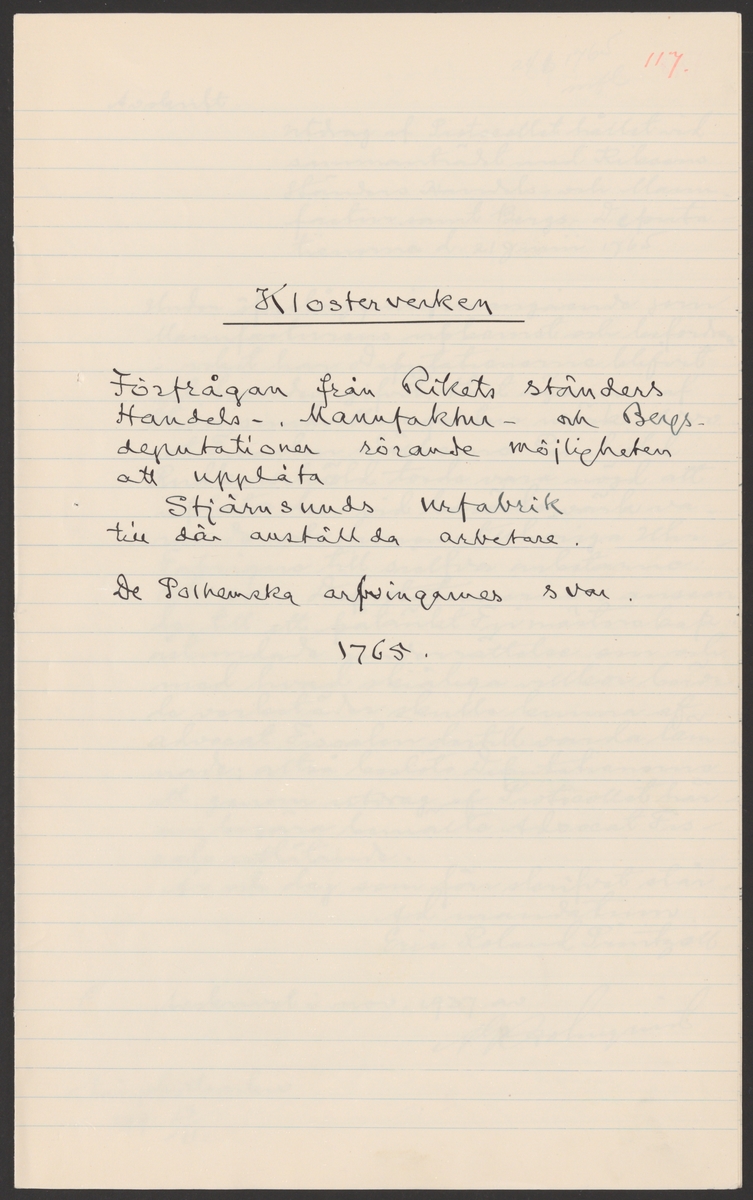 117.
Klosterverken
Förfrågan från Rikets ständers
Handels-, Manufaktur- och Bergs-
deputationer rörande möjligheten
att upplåta
Stjärnsunds urfabrik
till där anställda arbetare.
De Polhemska arfvingarnes svar.
1765.